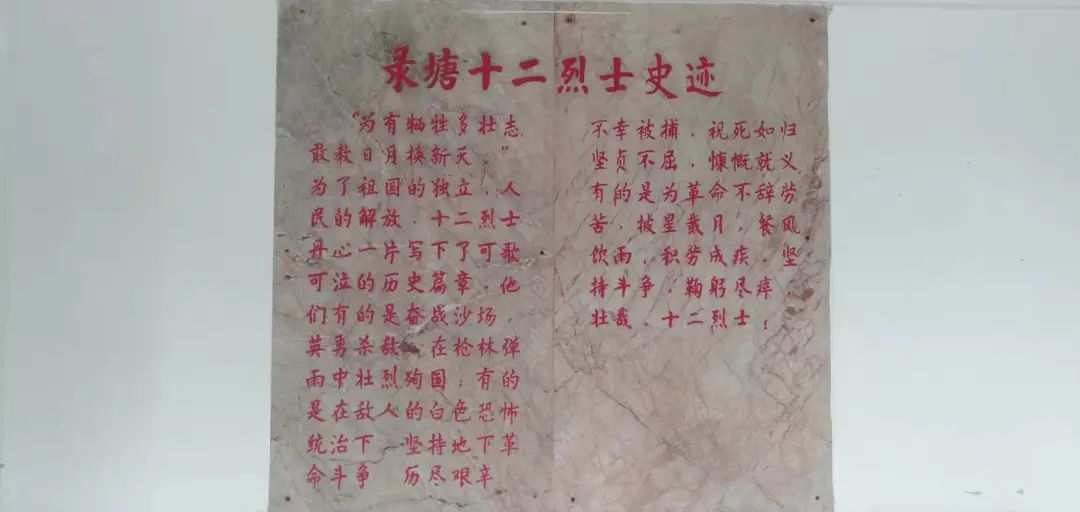 录塘十二烈士史迹
“为有牺牲多壮志
敢教日月换新天，”
为了祖国的独立，人
民的解放，十二烈士
丹心一片写下了可歌
可泣的历史篇章，他
们有的是奋战沙场，
英勇杀敌，在枪林弹
雨中壮烈殉国；有的
是在敌人的白色恐怖
统治下，坚持地下革
命斗争 历尽艰辛
不幸被捕，视死如归
坚贞不屈，慷慨就义
有的是为革命不辞劳
苦，披星戴月，餐风
饮雨，积劳成疾，坚
持斗争，鞠躬尽瘁，
壮哉，十二烈士！